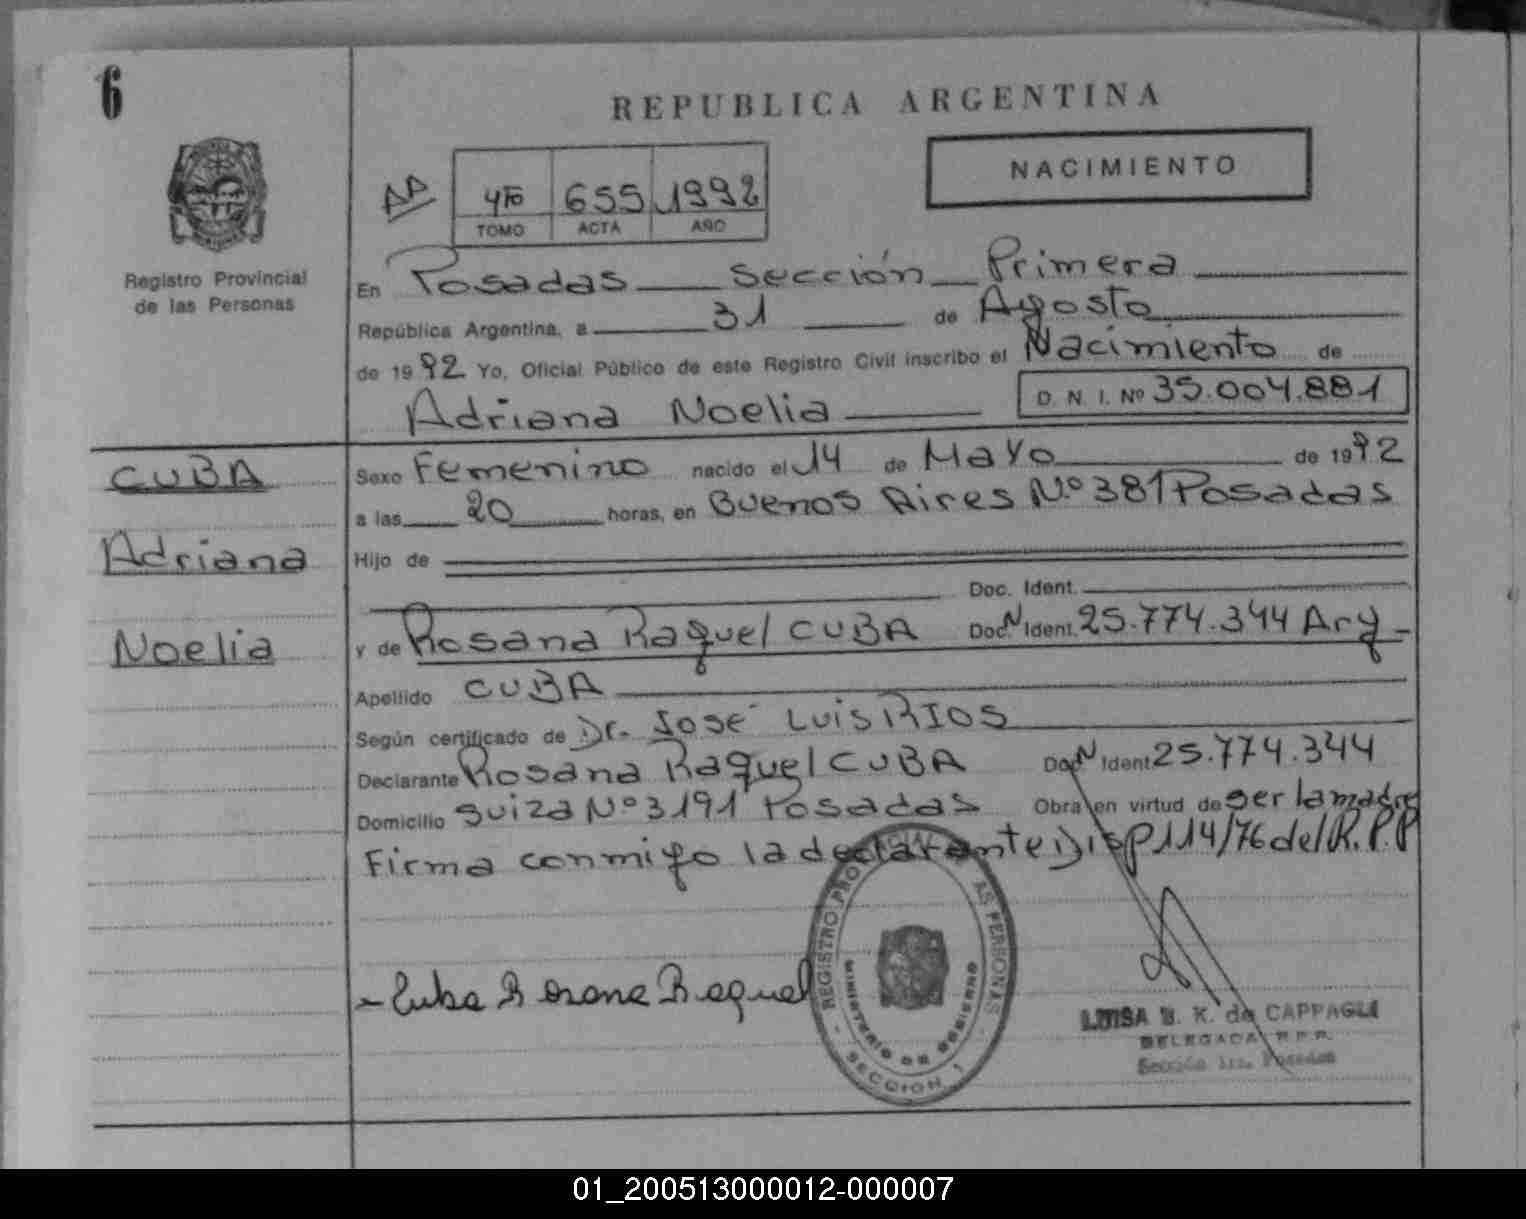 6
REPUBLICA ARGENTINA
NACIMIENTO
4to 655 1992
TOMO ACTA AÑO
Registro Provincial
de las Personas
En Posadas Sección Primera
República Argentina, a 31 de Agosto
de 1992 Yo, Oficial Público de este Registro Civil inscribo el Nacimiento de
Adriana Noelia D. N. I. Nº 35.004.881
CUBA
Adriana
Noelia
Sexo Femenino nacido el 14 de Mayo de 1992
a las 20 horas, en Buenos Aires N.º 381 Posadas
Hijo de
Doc. Ident.
y de Rosana Raquel CUBA Doc. N Ident. 25.774.344 Arg
Apellido CUBA
Según certificado de Dr. José Luis RIOS
Declarante Rosana Raquel CUBA Doc. N Ident 25.774.344
Domicilio Suiza Nº 3191 Posadas Obra en virtud de ser la madre
Firma conmigo la declarante Disp 114/76 del R.P.P
Cuba Rosana Raquel
REGISTRO PROVINCIAL AS PERSONAS
MINISTERIO DE GOBIERNO
SECCION 1
LUISA B. K. de CAPPAGLI
DELEGADA R.P.P.
Sección 1ra. Posadas
01_200513000012-000007